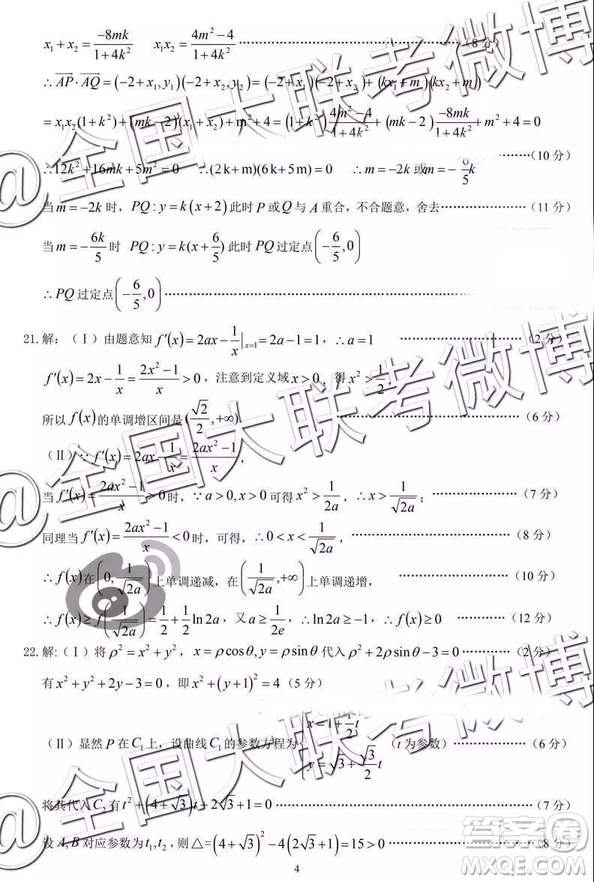 x₁+x₂=\frac{-8mk}{1+4k²} x₁x₂=\frac{4m²-4}{1+4k²} ……(8分)
∴\vec{AP}·\vec{AQ}=(-2+x₁,y₁)(-2+x₂,y₂)=(-2+x₁)(-2+x₂)+(kx₁+m)(kx₂+m)
=x₁x₂(1+k²)+(mk-2)(x₁+x₂)+m²+4=(1+k²)\frac{4m²-4}{1+4k²}+(mk-2)\frac{-8mk}{1+4k²}+m²+4=0
∴12k²+16mk+5m²=0 ∴(2k+m)(6k+5m)=0 ∴m=-2k或m=-\frac{6}{5}k ……(10分)
当m=-2k时,PQ:y=k(x+2)此时P或Q与A重合,不合题意,舍去……(11分)
当m=-\frac{6k}{5}时 PQ:y=k(x+\frac{6}{5})此时PQ过定点(-\frac{6}{5},0)
∴PQ过定点(-\frac{6}{5},0)……
21.解:(Ⅰ)由题意知f′(x)=2ax-\frac{1}{x}|ₓ₌₁=2a-1=1,∴a=1 ……(2分)
f′(x)=2x-\frac{1}{x}=\frac{2x²-1}{x}>0,注意到定义域x>0,得x²>\frac{1}{2},
所以f(x)的单调增区间是(\frac{√2}{2},+∞). ……(6分)
(Ⅱ)∵f′(x)=2ax-\frac{1}{x}=\frac{2ax²-1}{x},
当f′(x)=\frac{2ax²-1}{x}>0时,∵a>0,x>0可得x²>\frac{1}{2a},∴x>\frac{1}{\sqrt{2a}}; ……(7分)
同理当f′(x)=\frac{2ax²-1}{x}<0时,可得,∴0<x<\frac{1}{\sqrt{2a}}, ……(8分)
∴f(x)在(0,\frac{1}{\sqrt{2a}})上单调递减,在(\frac{1}{\sqrt{2a}},+∞)上单调递增, ……(10分)
∴f(x)≥f(\frac{1}{\sqrt{2a}})=\frac{1}{2}+\frac{1}{2}ln2a,又a≥\frac{1}{2e},∴ln2a≥-1,∴f(x)≥0 ……(12分)
22.解:(Ⅰ)将ρ²=x²+y²,x=ρcosθ,y=ρsinθ代入ρ²+2ρsinθ-3=0……(2分)
有x²+y²+2y-3=0,即x²+(y+1)²=4(5分)
(Ⅱ)显然P在C₁上,设曲线C₁的参数方程为{x=1+\frac{1}{2}t y=√3+\frac{√3}{2}t (t为参数)……(6分)
将其代入C₂有t²+(4+√3)t+2√3+1=0……(7分)
设A,B对应参数为t₁,t₂,则△=(4+√3)²-4(2√3+1)=15>0……(8分)
4
@全国大联考微博
@全国大联考微博
@全国大联考微博
答案圈
MXQE.COM